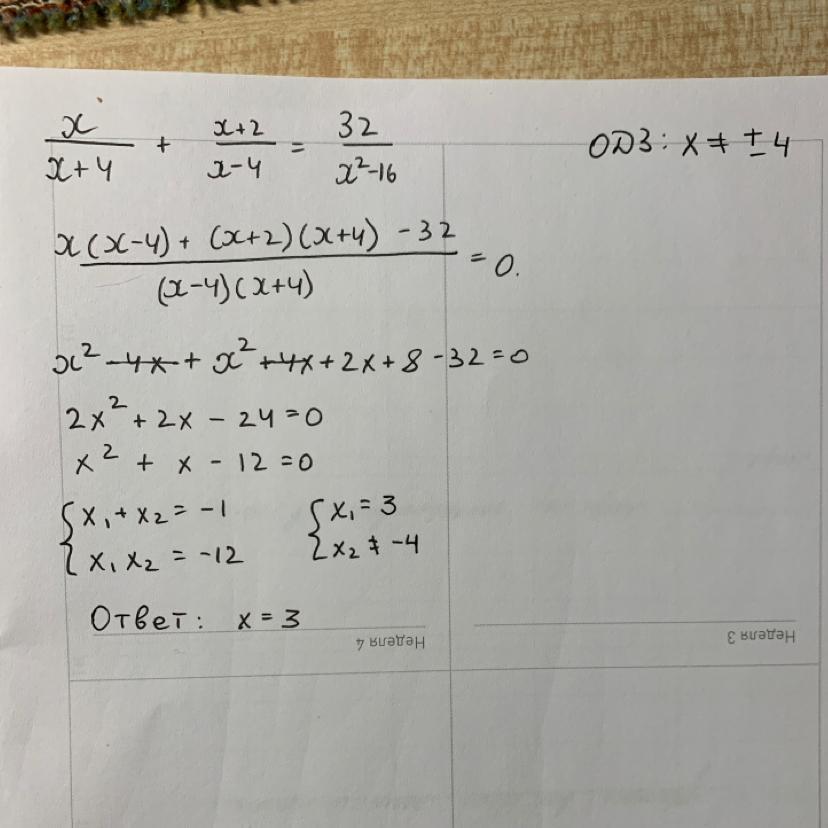 x/(x+4) + (x+2)/(x-4) = 32/(x²-16) ОДЗ: x ≠ ± 4
(x(x-4) + (x+2)(x+4) - 32)/((x-4)(x+4)) = 0.
x² - 4x + x² + 4x + 2x + 8 - 32 = 0
2x² + 2x - 24 = 0
x² + x - 12 = 0
{x₁ + x₂ = -1 {x₁ = 3
{x₁ x₂ = -12 {x₂ ≠ -4
Ответ: x = 3
Неделя 4 Неделя 3